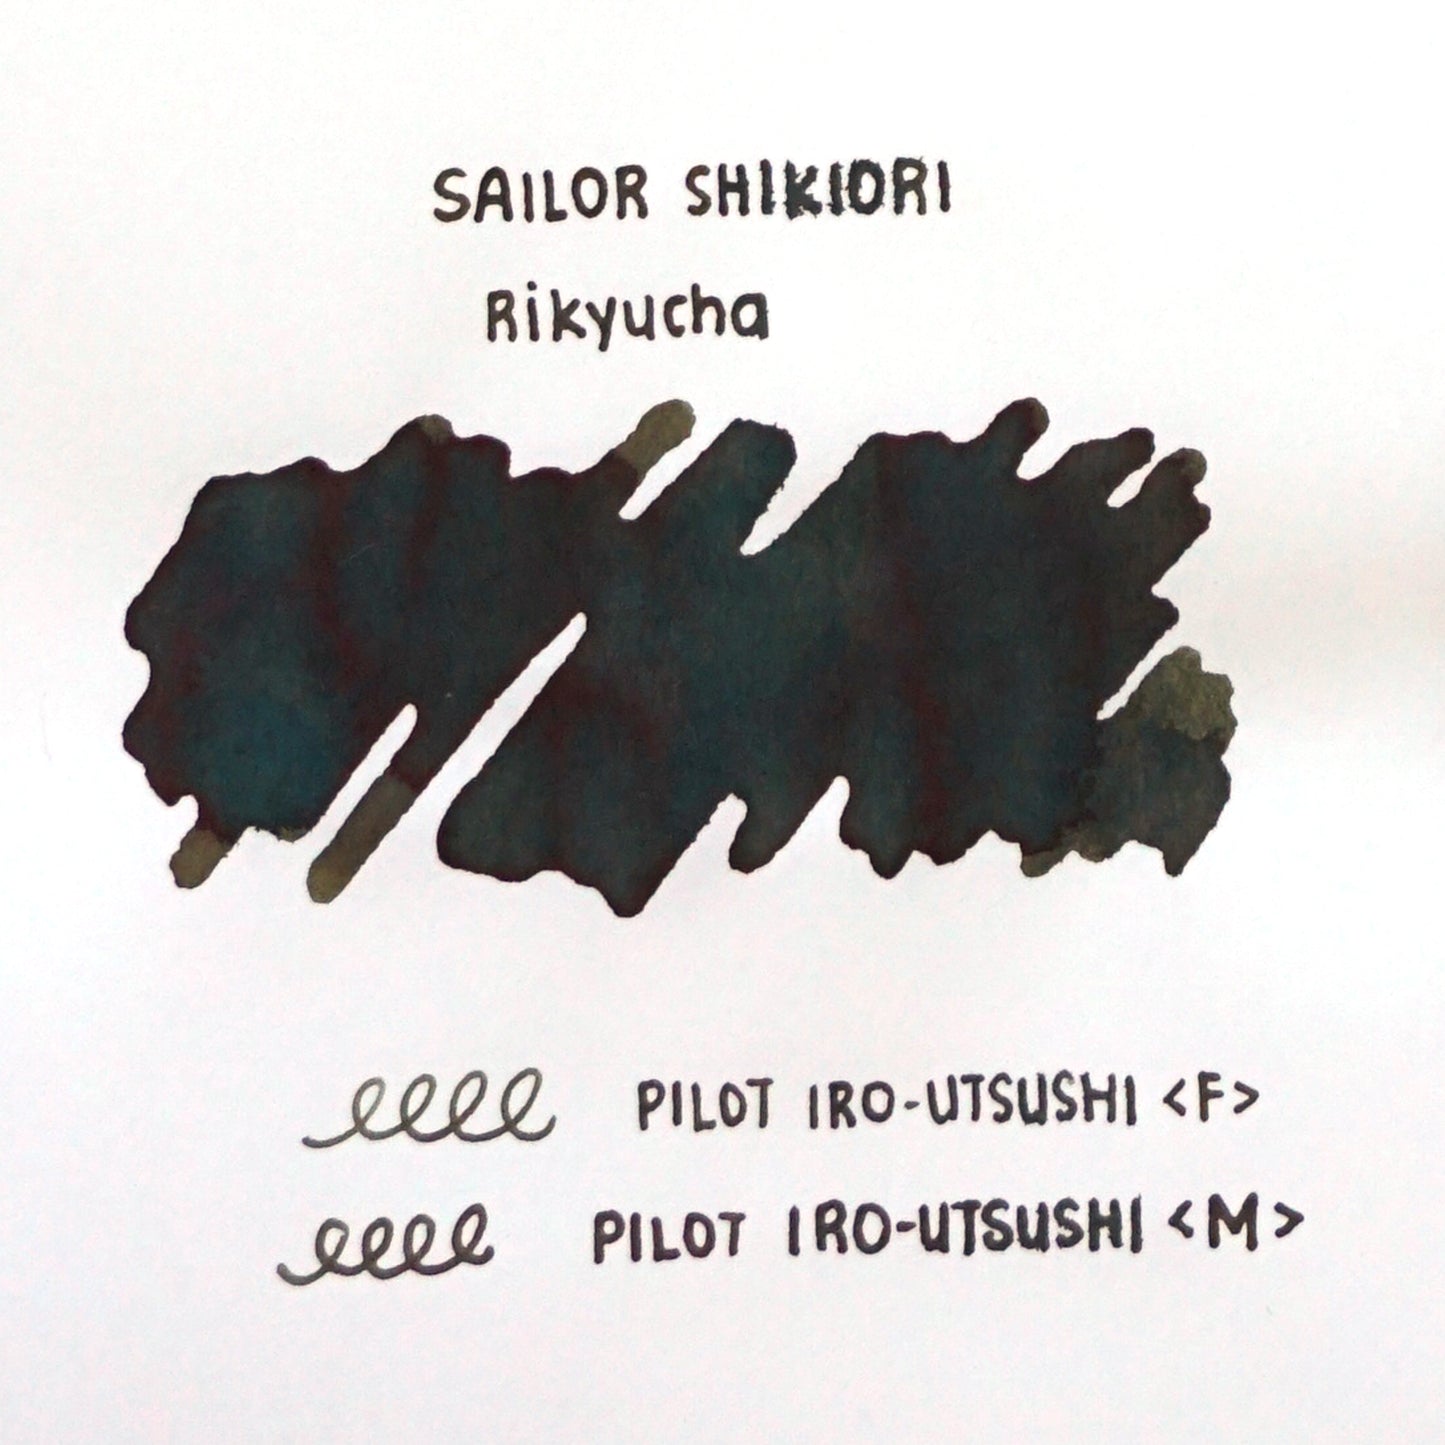 SAILOR SHIKIORI
Rikyucha
PILOT IRO-UTSUSHI <F>
PILOT IRO-UTSUSHI <M>